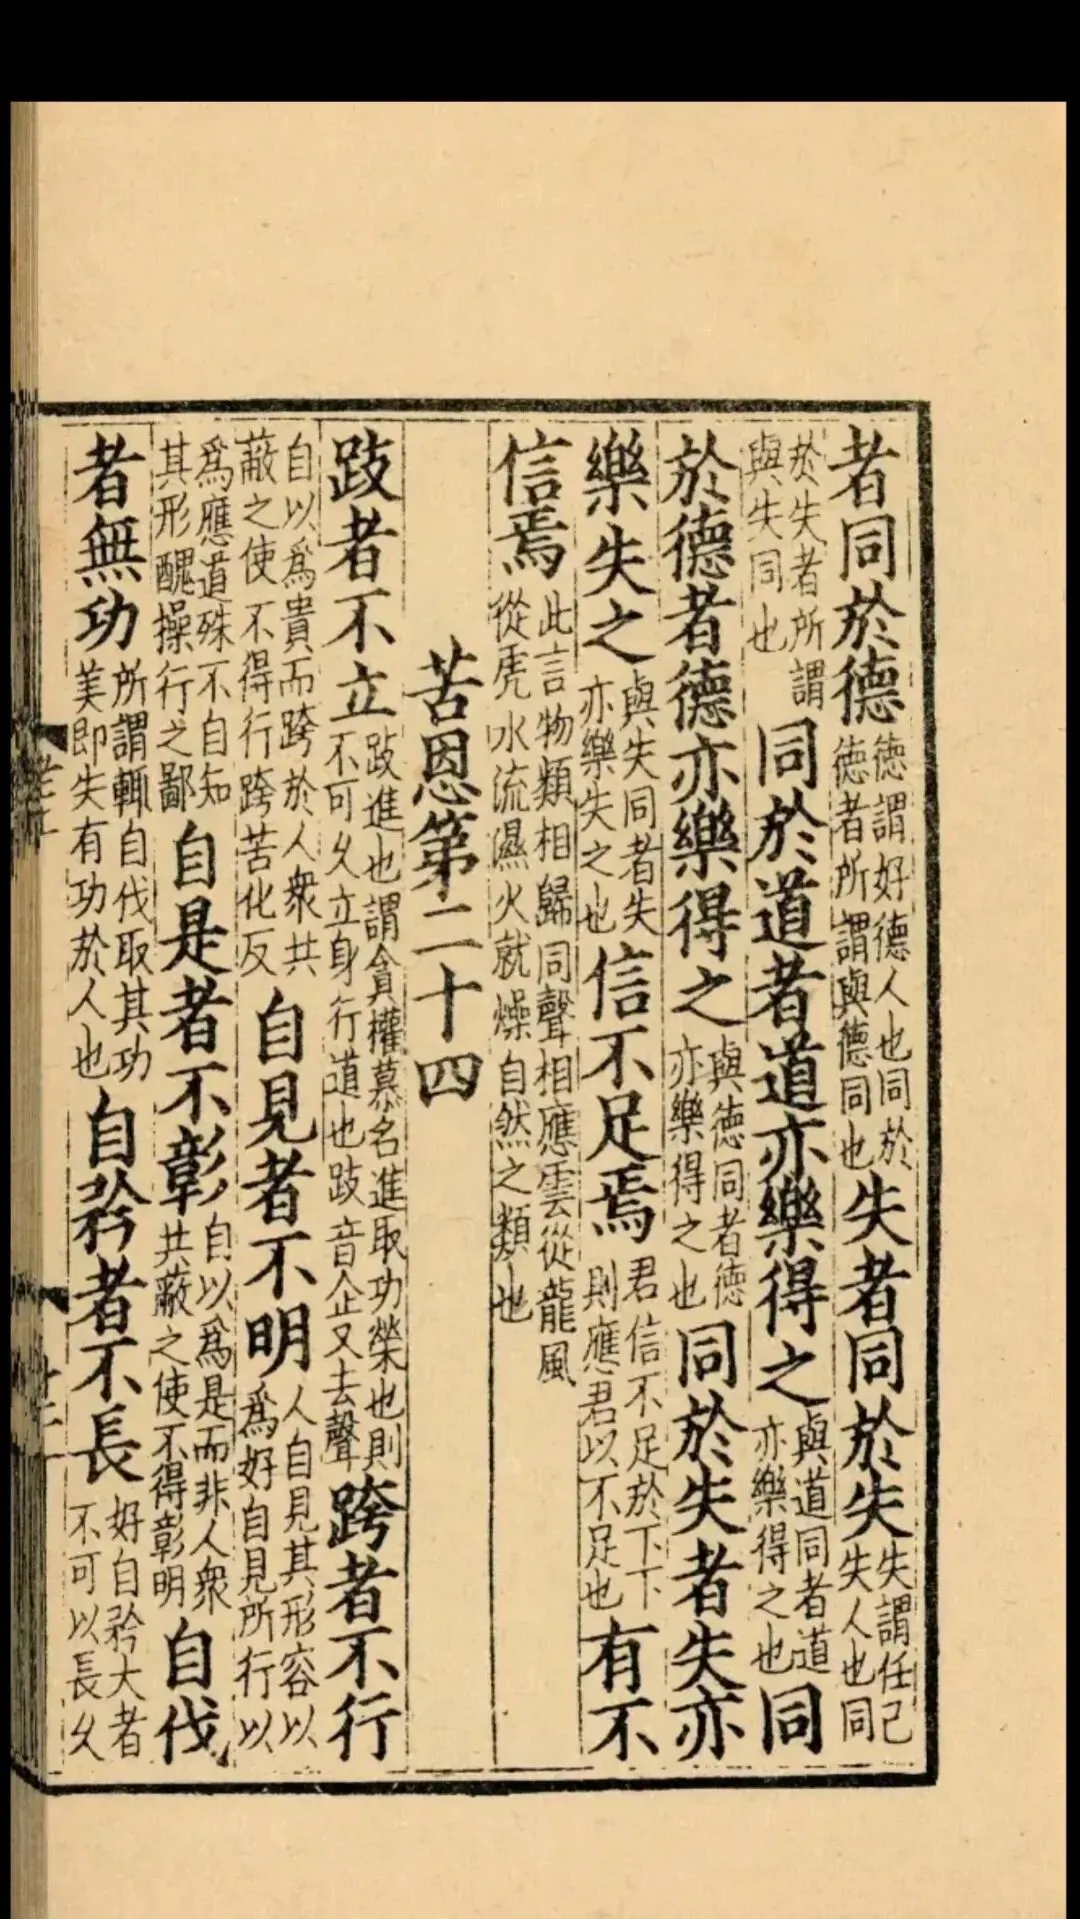 者同於德德謂好德人也同於德者所謂與德同也失者同於失失謂任己失人也同
於失者所謂與失同也同於道者道亦樂得之與道同者道亦樂得之也同
於德者德亦樂得之與德同者德亦樂得之也同於失者失亦
樂失之與失同者失亦樂失之也信不足焉君信不足於下下則應君以不足也有不
信焉此言物類相歸同聲相應雲從龍風從虎水流濕火就燥自然之類也
苦恩第二十四
跂者不立跂進也謂貪權慕名進取功榮也則不可久立身行道也跂音企又去聲跨者不行
自以為貴而跨於人衆共蔽之使不得行跨苦化反自見者不明人自見其形容以為好自見所行以
為應道殊不自知其形醜操行之鄙自是者不彰自以為是而非人衆共蔽之使不得彰明自伐
者無功所謂輒自伐取其功美即失有功於人也自矜者不長好自矜大者不可以長久